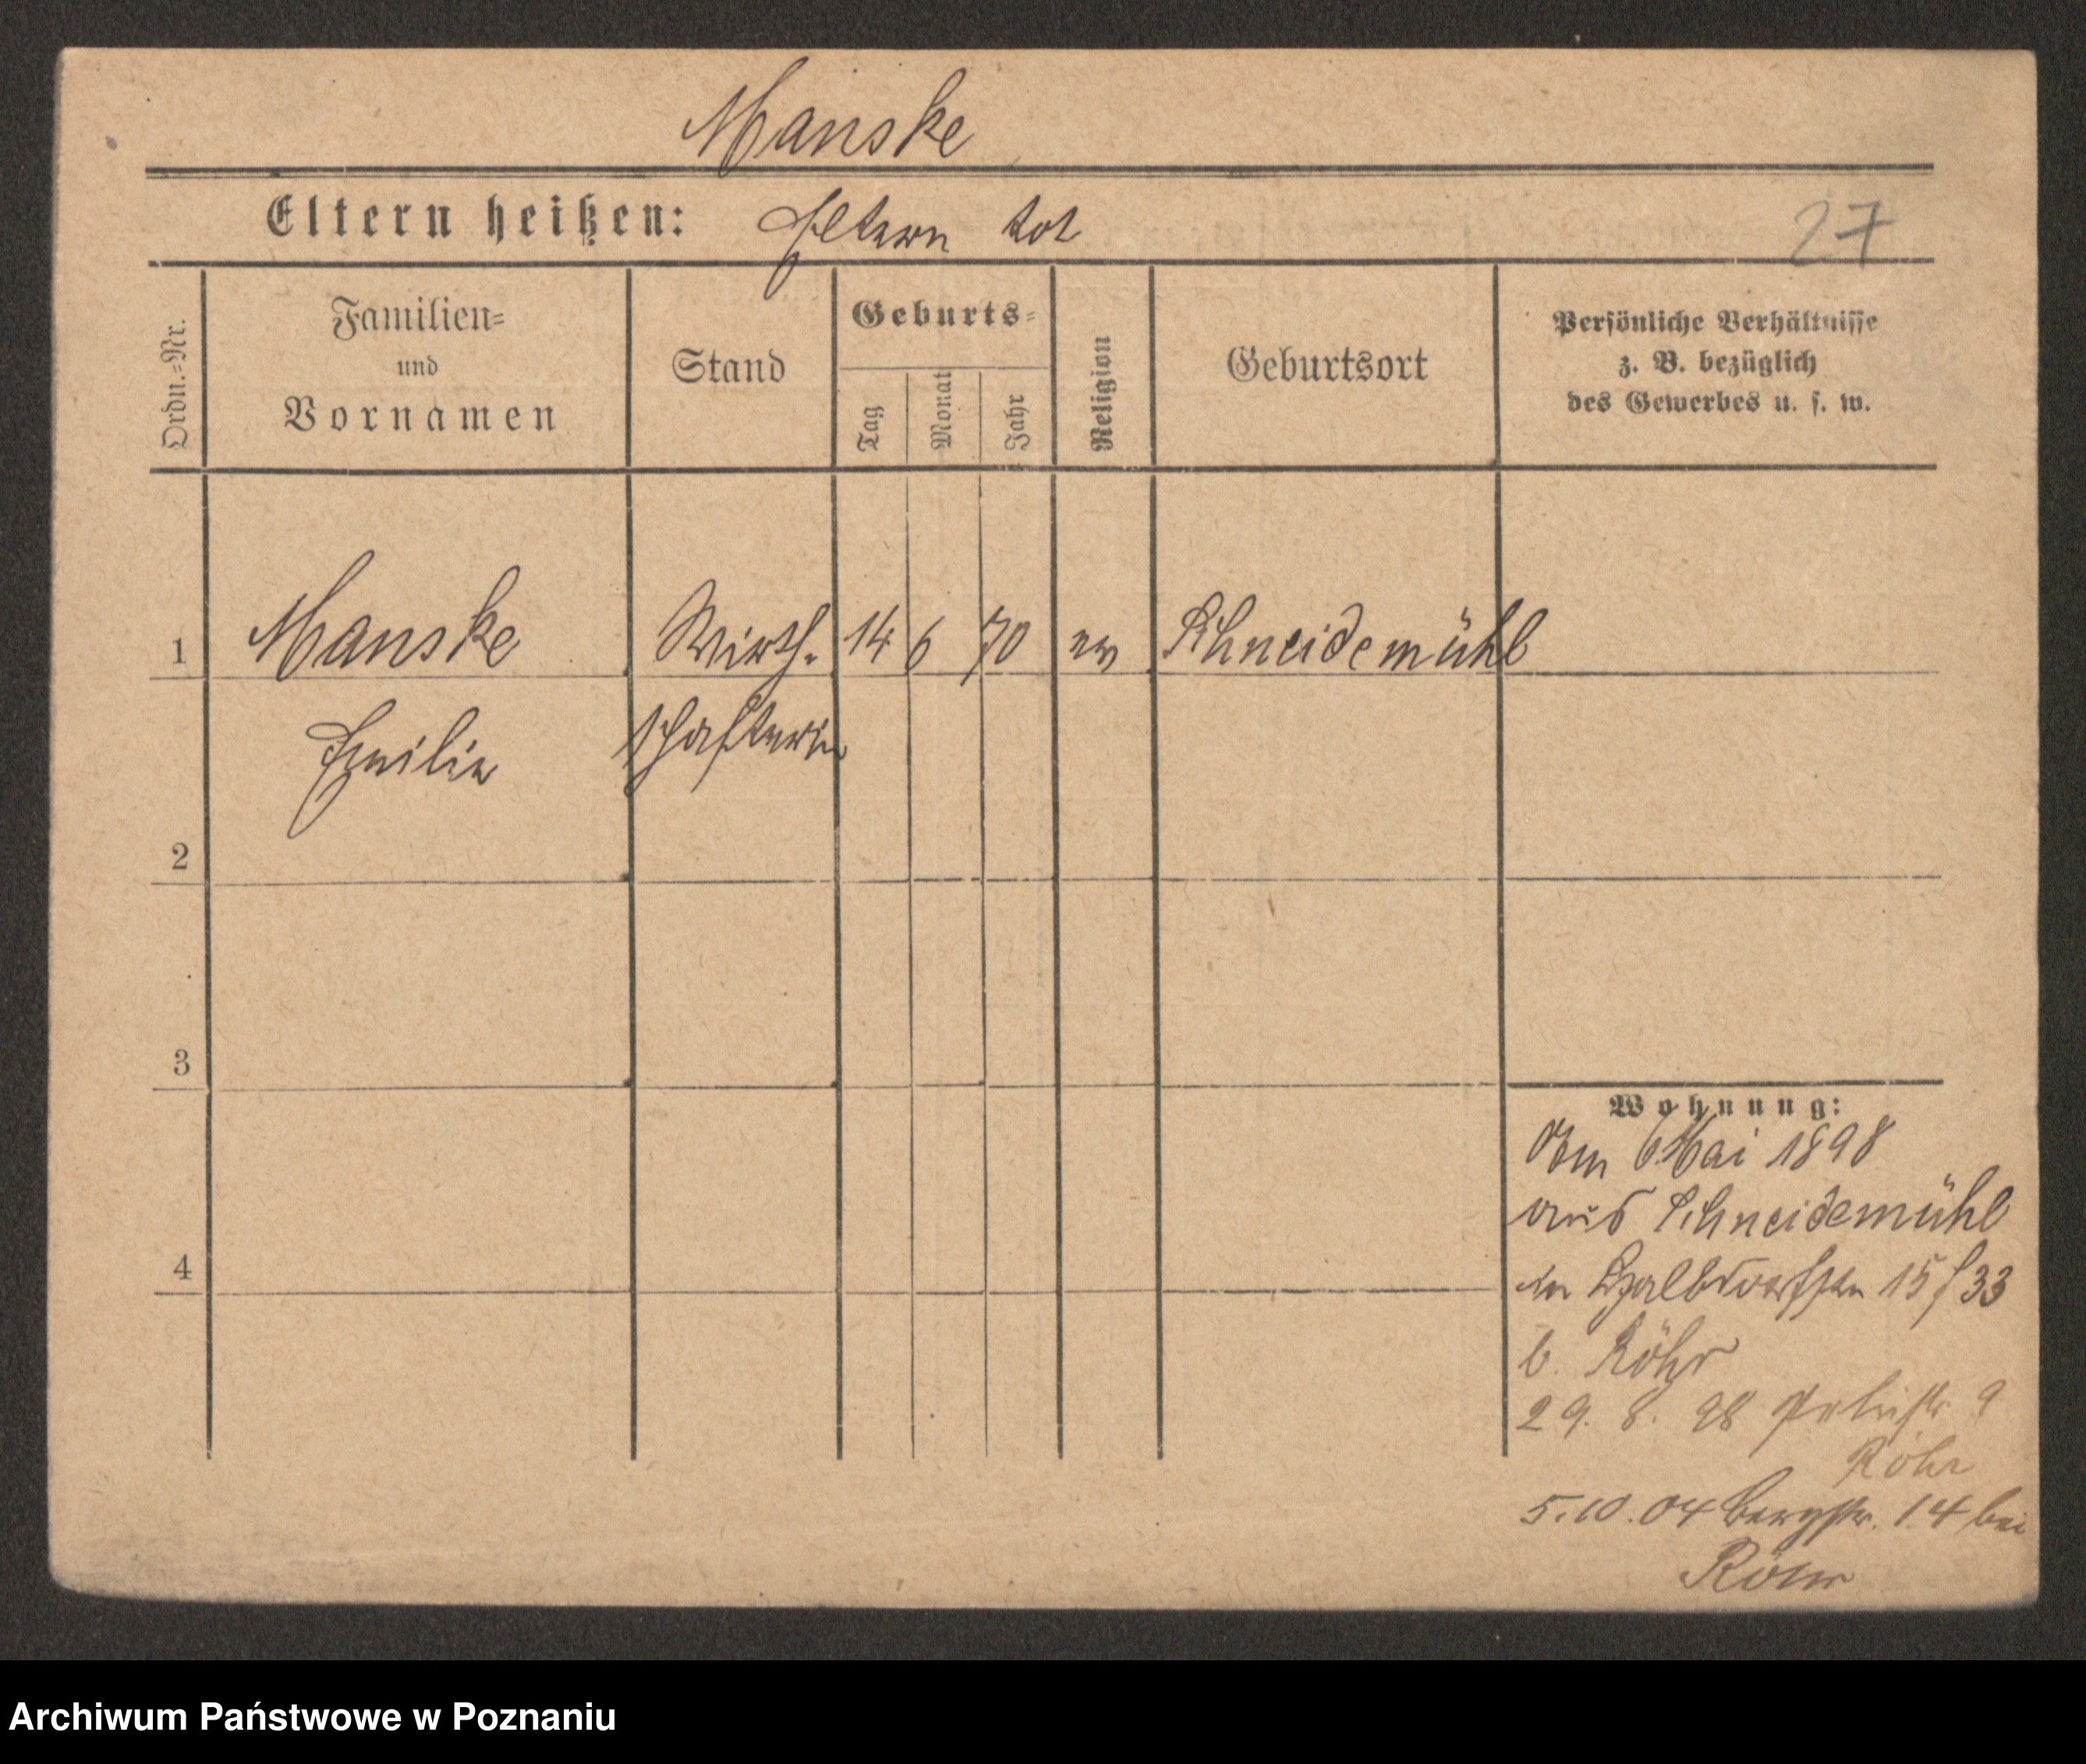 Manske
Eltern heißen: Eltern tot
27
Ordn.=Nr.
Familien=
und
Vornamen
Stand
Geburts=
Tag
Monat
Jahr
Religion
Geburtsort
Persönliche Verhältnisse
z. B. bezüglich
des Gewerbes u. s. w.
1 Manske Wirth. 14 6 70 ev Schneidemühl
Emilie schafterin
2
3
4
Wohnung:
Am 6 Mai 1898
aus Schneidemühl
in Halbdorfstr 15/33
b. Röhr
29. 8. 98 Petristr 9
Röhr
5.10.04 Bergstr. 14 bei
Röhr
Archiwum Państwowe w Poznaniu